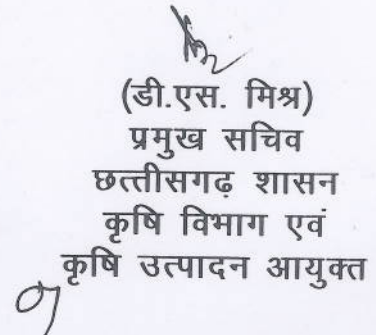 (डी.एस. मिश्र)
प्रमुख सचिव
छत्तीसगढ़ शासन
कृषि विभाग एवं
कृषि उत्पादन आयुक्त